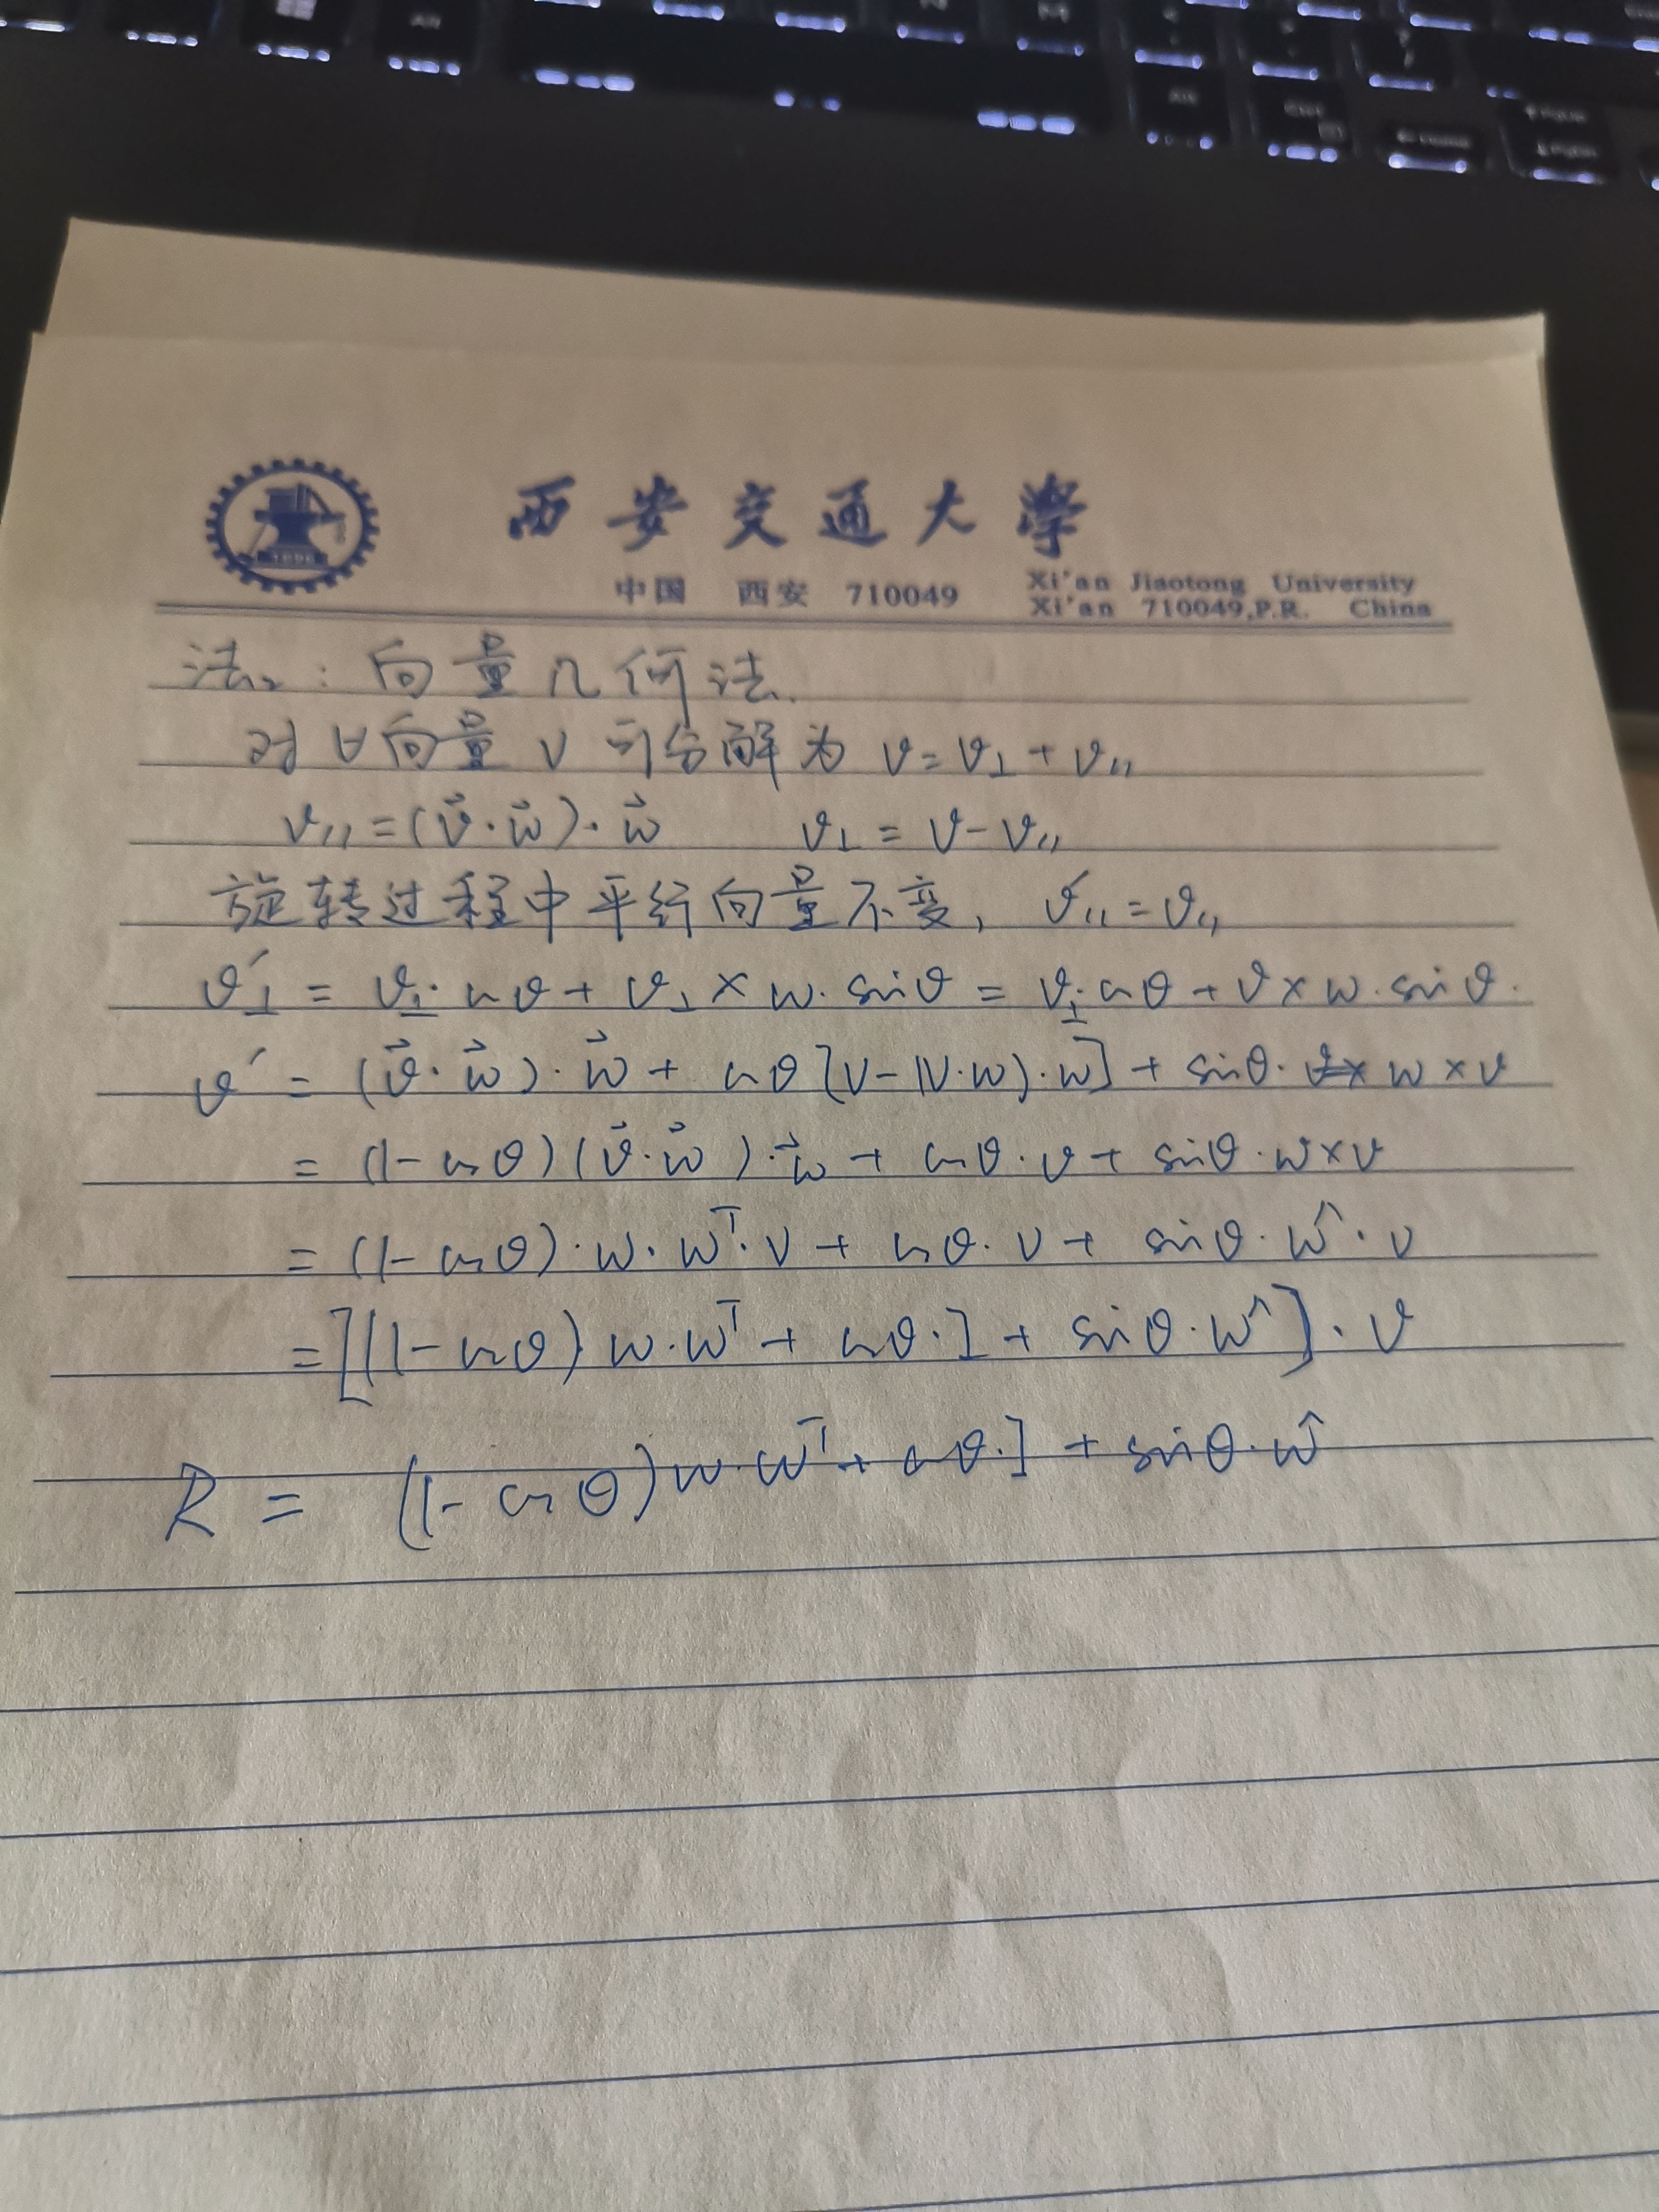 西安交通大學
中国 西安 710049
Xi'an Jiaotong University
Xi'an 710049,P.R. China
法二: 向量几何法.
对∀向量 v 可分解为 v = v⊥ + v//
v// = (v⃗·w⃗)·w⃗ v⊥ = v - v//
旋转过程中平行向量不变, v'// = v//
v'⊥ = v⊥·cosθ + v⊥ × w·sinθ = v⊥·cosθ + v × w·sinθ.
v' = (v⃗·w⃗)·w⃗ + cosθ[v-(v·w)·w⃗] + sinθ· w × v
= (1-cosθ)(v⃗·w⃗)·w⃗ + cosθ·v + sinθ·w×v
= (1-cosθ)·w·wᵀ·v + cosθ·v + sinθ·w^·v
= [(1-cosθ) w·wᵀ + cosθ·I + sinθ·w^]·v
R = (1-cosθ)w·wᵀ + cosθ·I + sinθ·w^